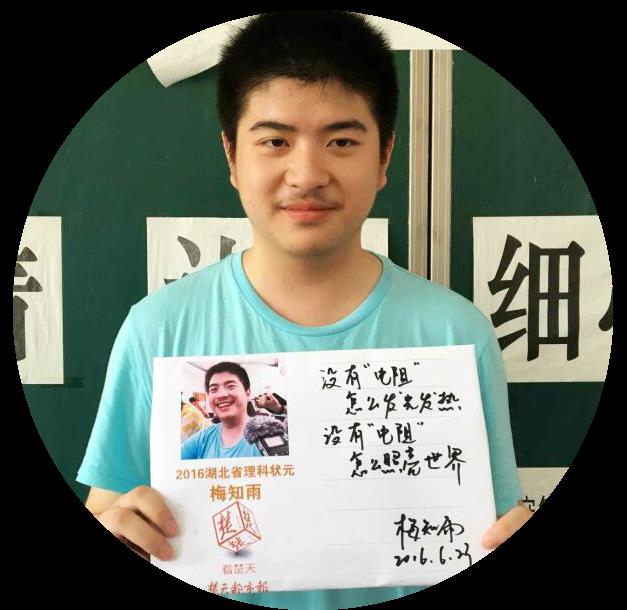 细
没有"电阻"
怎么发光发热，
没有"电阻"
怎么照亮世界
2016湖北省理科状元
梅知雨
楚
看楚天
楚天都市报
梅知雨
2016.6.23